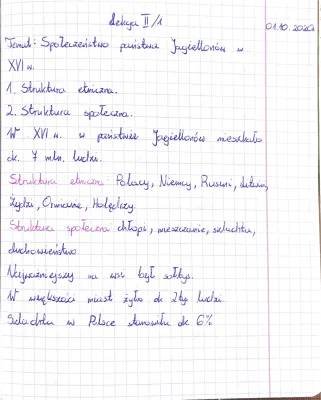 Lekcja II/1
01.10.2020
Temat: Społeczeństwo państwa Jagiellonów w
XVI w.
1. Struktura etniczna.
2. Struktura społeczna.
W XVI w. w państwie Jagiellonów mieszkało
ok. 7 mln. ludzi.
Struktura etniczna Polacy, Niemcy, Rusini, Litwini,
Żydzi, Ormianie, Holędrzy.
Struktura społeczna chłopi, mieszczanie, szlachta,
duchowieństwo
Najważniejszy na wsi był sołtys.
W większości miast żyło ok 2 tyś ludzi.
Szlachta w Polsce stanowiła ok 6%